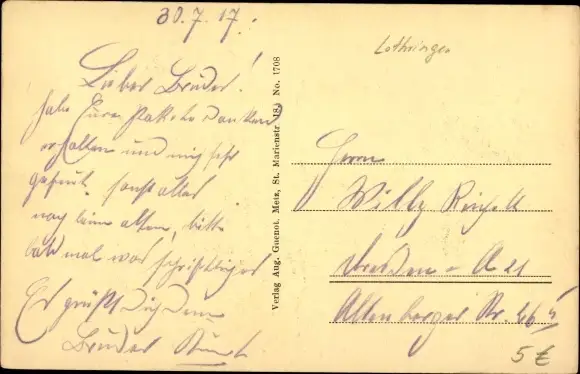 30.7.17.
Lieber Bruder!
habe Eure Pakete dankend
erhalten und mich sehr
gefreut. sonst alles
noch beim alten, bitte
bald mal was schriftliches
Es grüßt dich dein
Bruder
Verlag Aug. Guenot, Metz, St. Marienstr 18. No. 1708
Lothringen
Herrn
Willy
Dresden - A 21
Altenberger Str. 26
5 €